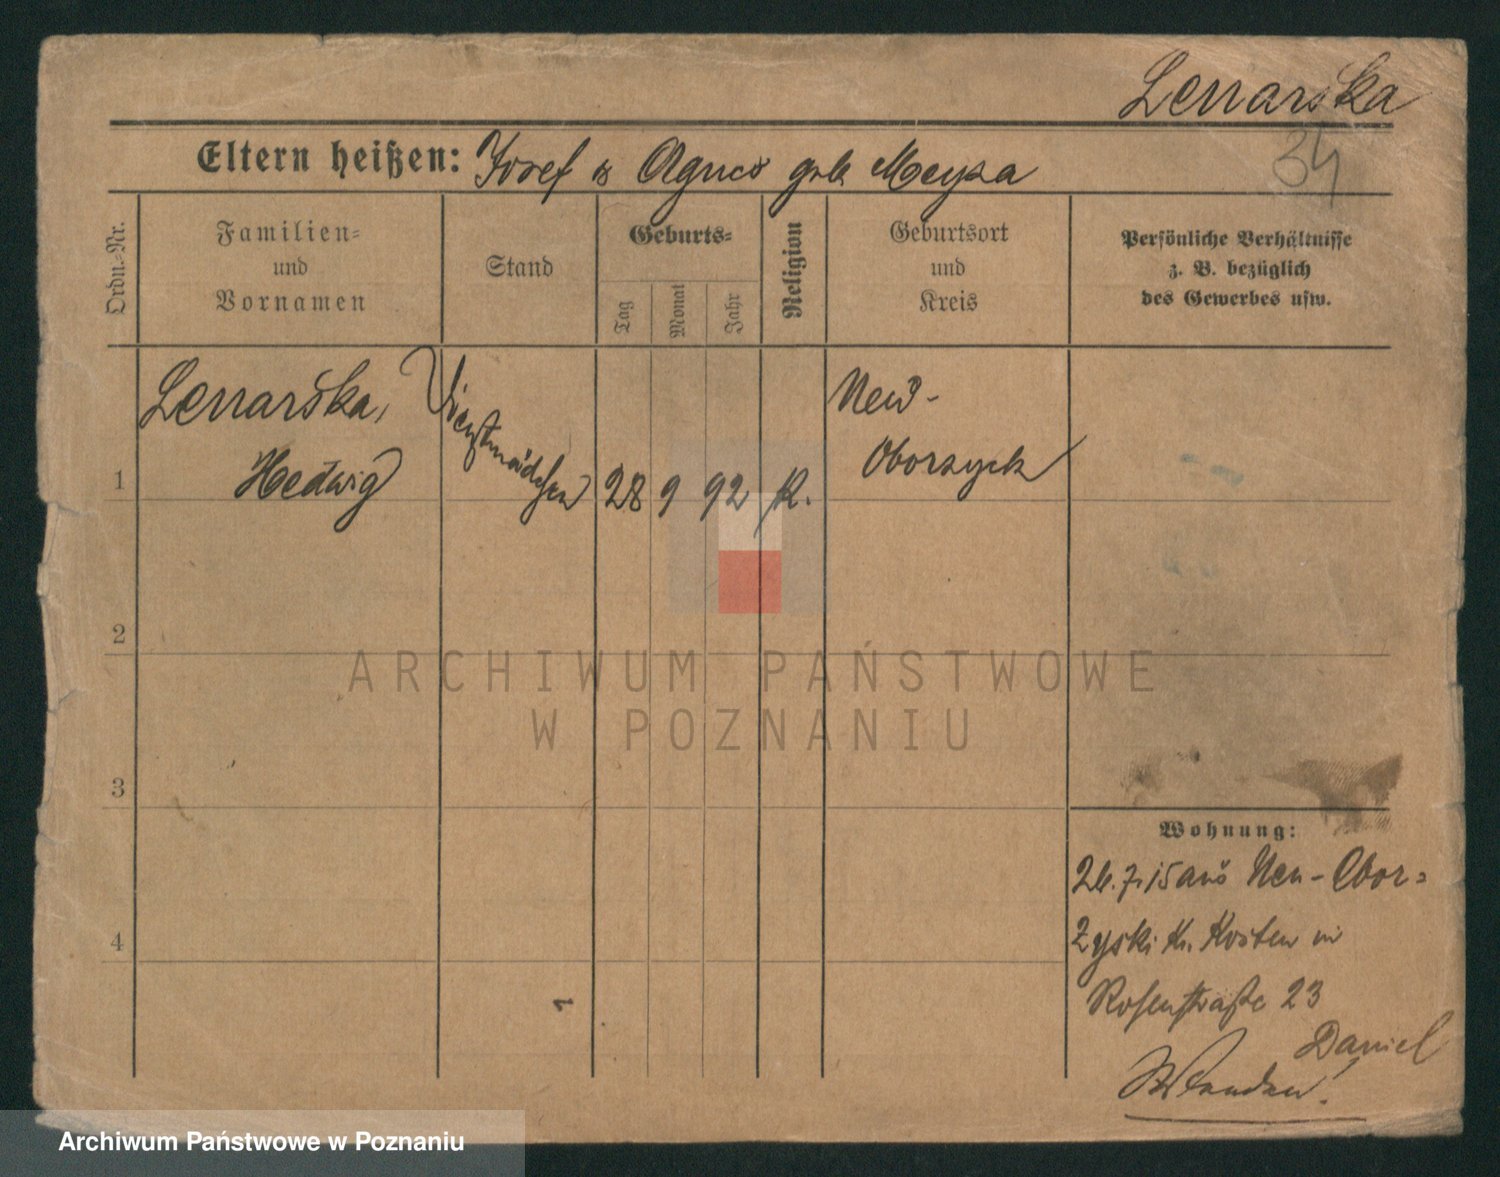 Lenarska
34
Eltern heißen: Josef u Agnes geb. Meyza
Ordn.-Nr.
Familien-
und
Vornamen
Stand
Geburts-
Tag
Monat
Jahr
Religion
Geburtsort
und
Kreis
Persönliche Verhältnisse
z. B. bezüglich
des Gewerbes usw.
1
Lenarska,
Hedwig
Dienstmädchen
28 9 92 K.
Neu-
Oborzysk
2
3
4
1
Wohnung:
26.7.15 aus Neu-Obor-
zyski Kr. Kosten in
Rosenstraße 23
Daniel
ARCHIWUM PAŃSTWOWE
W POZNANIU
Archiwum Państwowe w Poznaniu